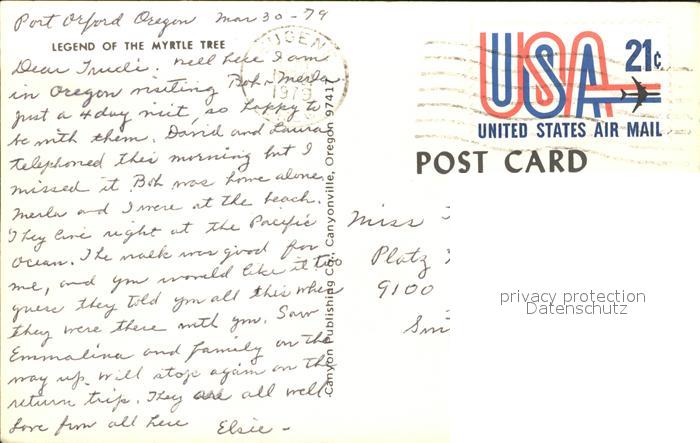 Port Orford Oregon Mar 30-79
LEGEND OF THE MYRTLE TREE
Dear Trudi. Well here I am
in Oregon visiting Bob & Merla
just a 4 day visit, so happy to
be with them. David and Laura
telephoned this morning but I
missed it Bob was home alone,
Merla and I were at the beach.
They live right at the Pacific
Ocean. The walk was good for
me, and you would like it too
guess they told you all this when
they were there with you. Saw
Emmalina and family on the
way up. Will stop again on the
return trip. They are all well
Love from all here Elsie -
Canyon Publishing Co., Canyonville, Oregon 97417
EUGENE
1979
USA 21c
UNITED STATES AIR MAIL
POST CARD
Miss
Platz
9100
privacy protection
Datenschutz